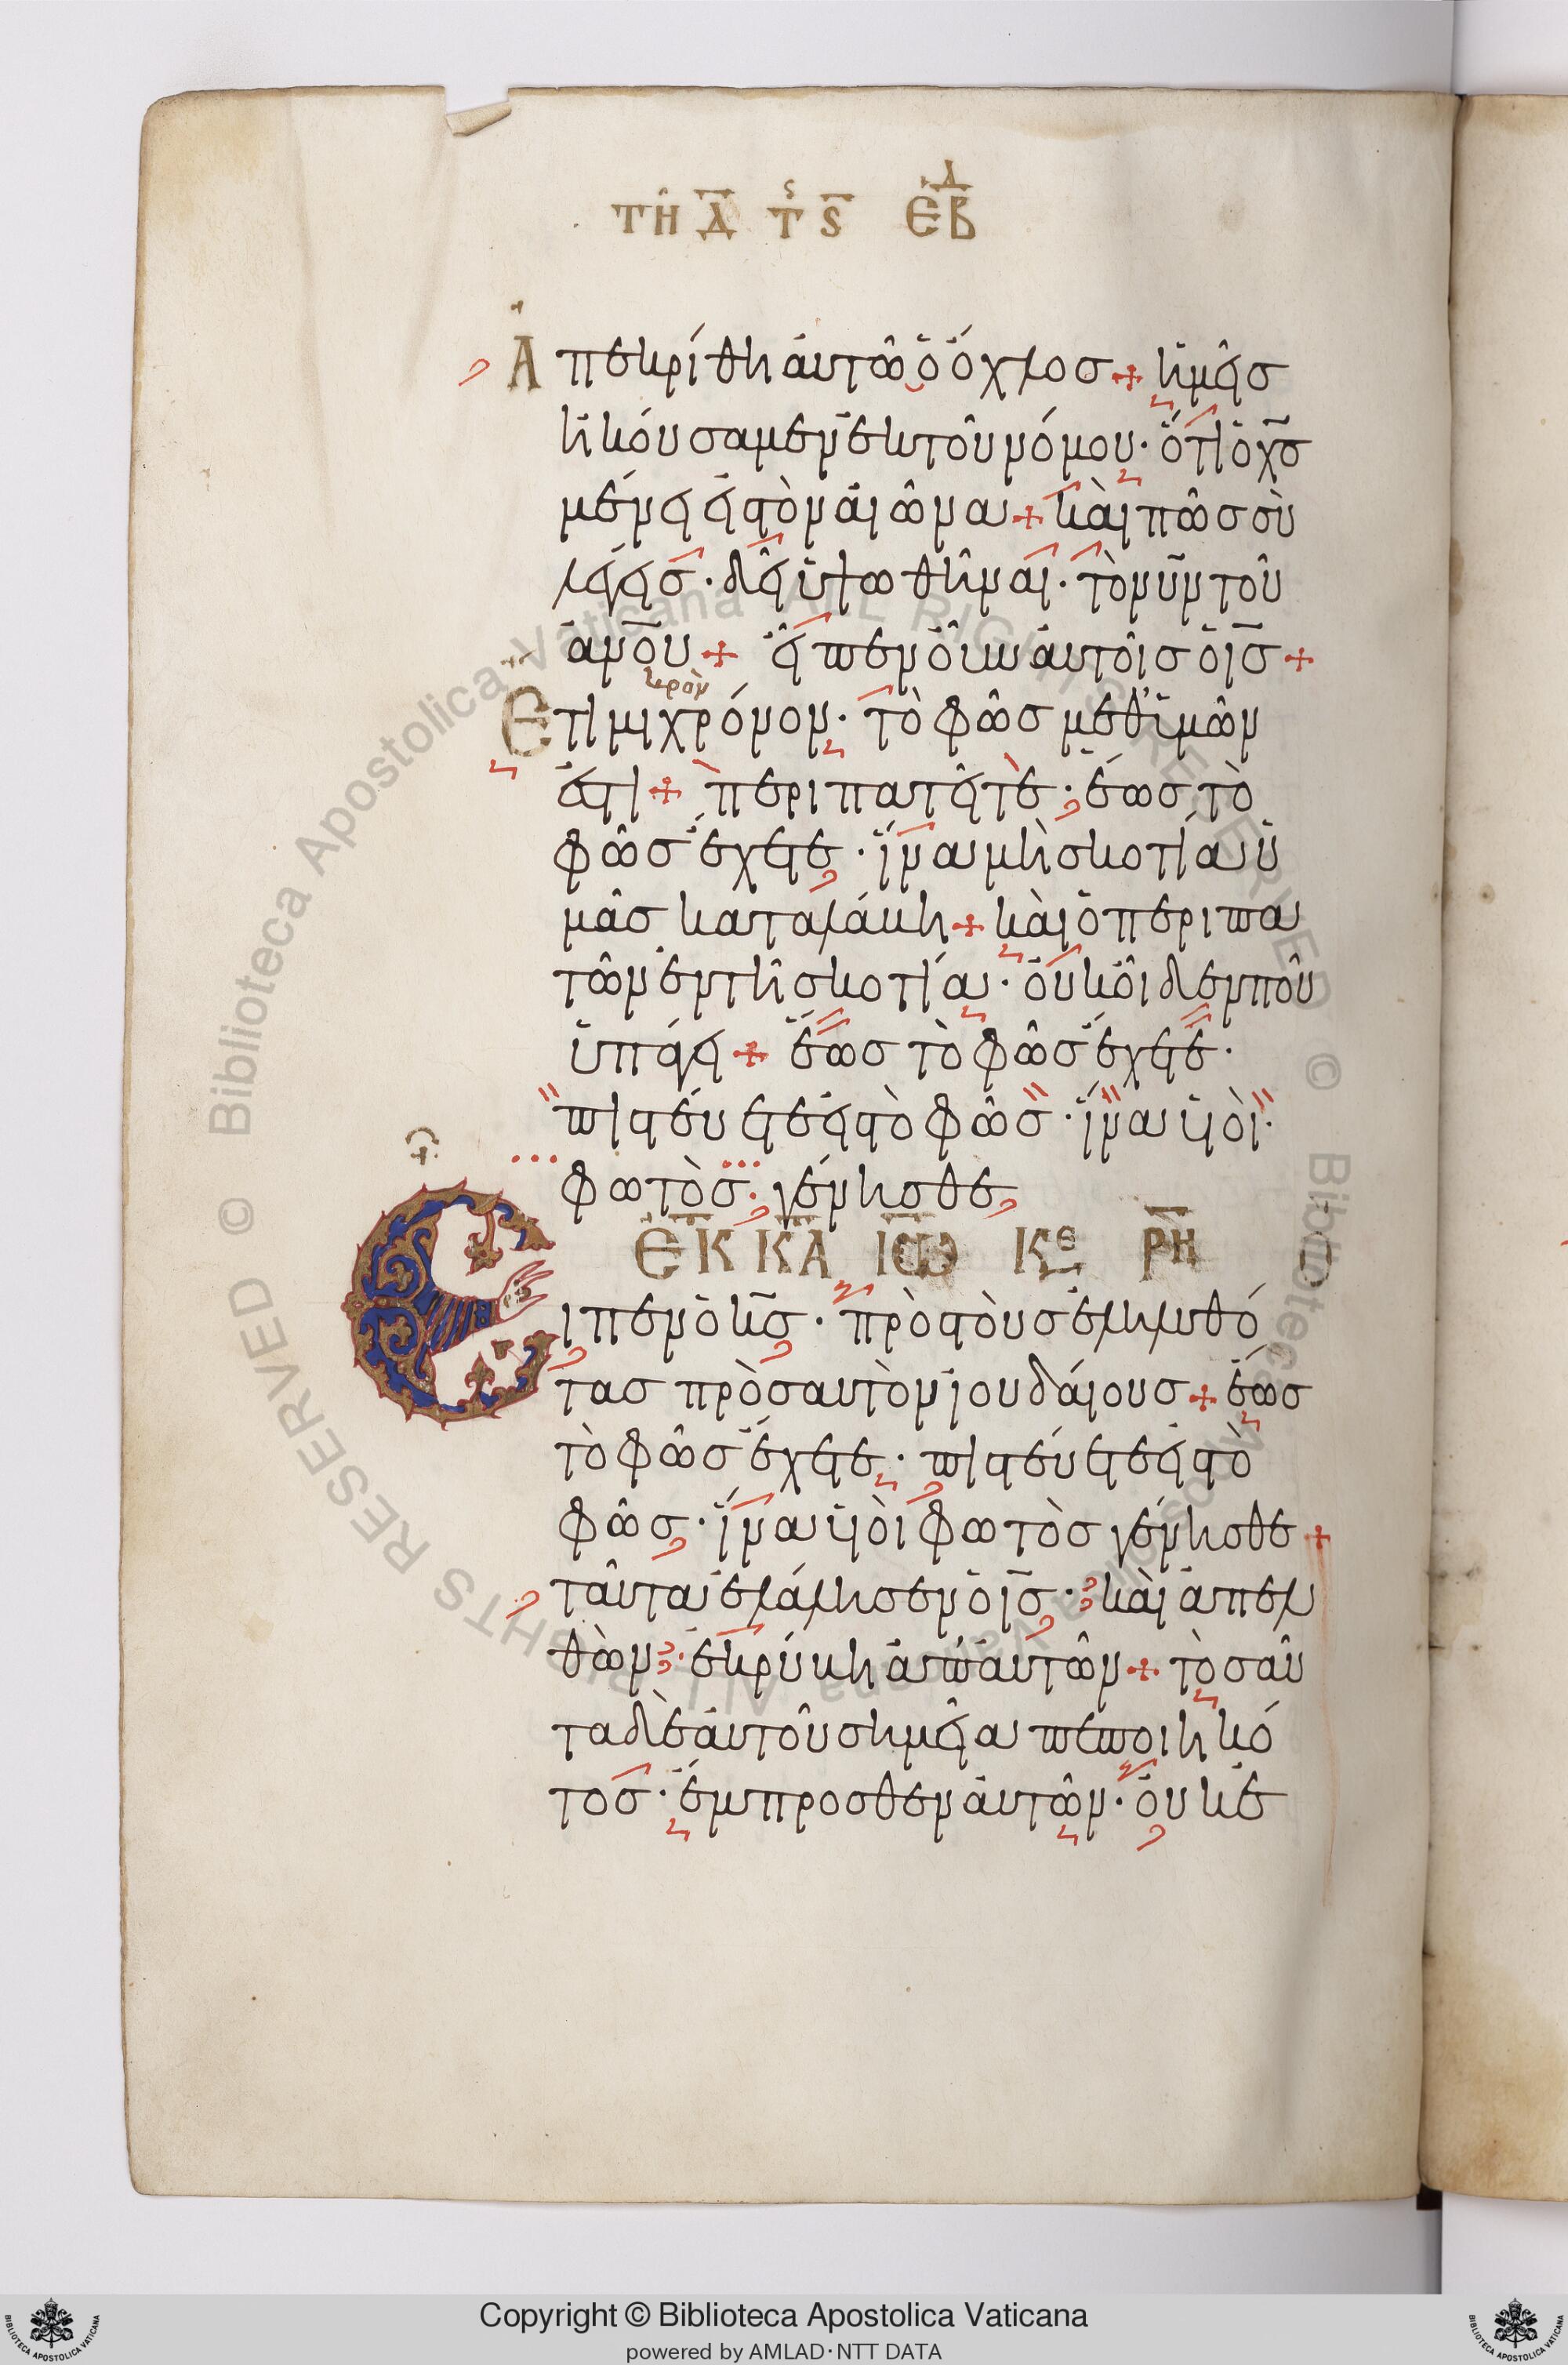 τῆ Δ τ̑ς ς ἑβδ
Ἀπεκρίθη ἀυτῶ ὁ ὄχλοσ + ἡμεῖσ
ἠκόυσαμεν ἐκ τοῦ νόμου · ὅτι ὁ χ̅σ̅
μένει ἐις τὸν ἀιῶνα + κὰι πῶσ σὺ
λέγεισ · δεῖ ὑψωθῆναι · τὸν υ̅ν̅ τοῦ
ἀν̅ο̅υ̅ + εἶπεν ὀῦν ἀυτοῖσ ὁ ι̅σ̅ +
Ἔτι μιχρόνον · τὸ φῶσ μεθ ἡμῶν
κρὸν
ἐστι + περιπατεῖτε · ἕωσ τὸ
φῶσ ἔχετε · ἵνα μὴ σκοτία ὑ
μᾶσ καταλάβη + κὰι ὁ περιπα
τῶν ἐν τῆ σκοτία · ὀυκ ὀῖδεν ποῦ
ὑπάγει + ἕωσ τὸ φῶσ ἔχετε ·
πιστέυετε ἐις τὸ φῶσ · ἵνα ὑιὸι ·
φωτὸσ · γένησθε
ἐκ κΑ Ιω Κε ΡΗ
Ειπεν ὁ κ̅σ̅ · πρὸς τὸυσ ἐληλυθό
τασ πρὸσ αυτὸν ϊουδάιουσ + ἕωσ
τὸ φῶσ ἔχετε · πιστέυετε ἐις τὸ
φῶσ · ἵνα ὑιὸι φωτὸσ γένησθε +
ταῦτα ἐλάλησεν ὁ ι̅σ̅ · κὰι ἀπελ
θὼν · ἐκρύβη ἀπ ἀυτῶν + τὸσαῦ
τα δὲ ἀυτοῦ σημεῖα πεποιηκό
τοσ · ἔμπροσθεν ἀυτῶν · ὀυκ ἐ
Copyright © Biblioteca Apostolica Vaticana
powered by AMLAD·NTT DATA